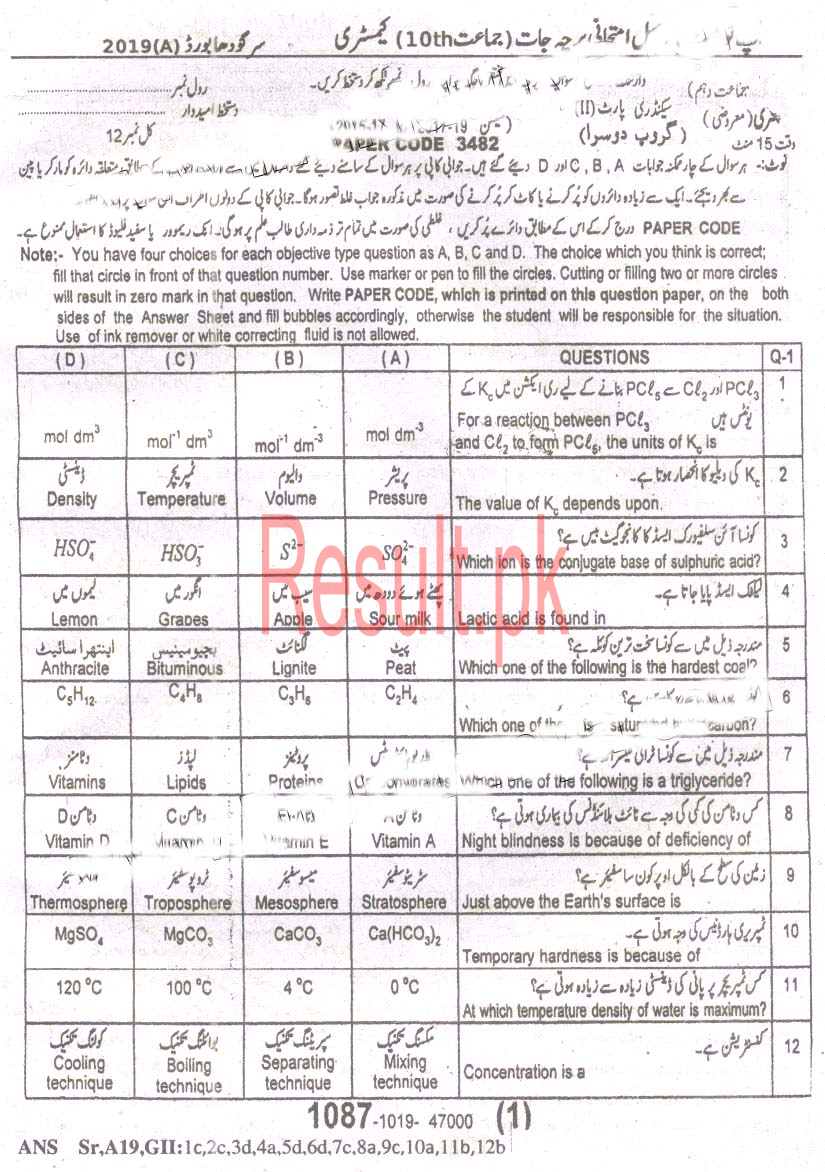 سرگودھا بورڈ 2019(A) کیمسٹری (جماعت 10th)
جماعت دہم)
رول نمبر
سیکنڈری پارٹ (II)
(معروضی)
دستخط امیدوار
وقت 15 منٹ (گروپ دوسرا) کل نمبر 12
PAPER CODE 3482
نوٹ:- ہر سوال کے چار ممکنہ جوابات A ، B ، C اور D دیئے گئے ہیں۔ جوابی کاپی پر ہر سوال کے سامنے دیئے گئے متعلقہ دائرہ کو مارکر یا پین
سے بھر دیجئے۔ ایک سے زیادہ دائروں کو پُر کرنے یا کاٹ کر پُر کرنے کی صورت میں مذکورہ جواب غلط تصور ہوگا۔ جوابی کاپی کے دونوں اطراف اس
PAPER CODE درج کر کے اس کے مطابق دائرے پُر کریں ، غلطی کی صورت میں تمام تر ذمہ داری طالب علم پر ہوگی۔ انک ریموور یا سفید فلیوڈ کا استعمال ممنوع ہے۔
Note:- You have four choices for each objective type question as A, B, C and D. The choice which you think is correct;
fill that circle in front of that question number. Use marker or pen to fill the circles. Cutting or filling two or more circles
will result in zero mark in that question. Write PAPER CODE, which is printed on this question paper, on the both
sides of the Answer Sheet and fill bubbles accordingly, otherwise the student will be responsible for the situation.
Use of ink remover or white correcting fluid is not allowed.
(D) (C) (B) (A) QUESTIONS Q-1
PCl₃ اور Cl₂ سے PCl₅ بنانے کے لیے ری ایکشن میں Kc کے 1
یونٹس ہیں For a reaction between PCl₃
mol dm³ mol⁻¹ dm³ mol⁻¹ dm⁻³ mol dm⁻³ and Cl₂ to form PCl₅, the units of Kc is
ڈینسٹی ٹمپریچر والیوم پریشر Kc کی ویلیو کا انحصار ہوتا ہے۔ 2
Density Temperature Volume Pressure The value of Kc depends upon.
کونسا آئن سلفیورک ایسڈ کا کانجوگیٹ بیس ہے؟ 3
HSO₄⁻ HSO₃⁻ S²⁻ SO₄²⁻ Which ion is the conjugate base of sulphuric acid?
لیموں میں انگور میں سیب میں پھٹے ہوئے دودھ میں لیکٹک ایسڈ پایا جاتا ہے۔ 4
Lemon Grapes Apple Sour milk Lactic acid is found in
اینتھراسائیٹ بیچومینیس لگنائٹ پیٹ مندرجہ ذیل میں سے کونسا سخت ترین کوئلہ ہے؟ 5
Anthracite Bituminous Lignite Peat Which one of the following is the hardest coal?
C₅H₁₂ C₄H₈ C₃H₆ C₂H₄ ہے؟ 6
Which one of the is
وٹامنز لپڈز پروٹینز مندرجہ ذیل میں سے کونسا ٹرائی گلیسرائڈ ہے؟ 7
Vitamins Lipids Proteins Which one of the following is a triglyceride?
وٹامن D وٹامن C وٹامن کس وٹامن کی کمی کی وجہ سے نائٹ بلائنڈنس کی بیماری ہوتی ہے؟ 8
Vitamin D Vitamin E Vitamin A Night blindness is because of deficiency of
ٹروپوسفیئر میسوسفیئر سٹریٹوسفیئر زمین کی سطح کے بالکل اوپر کون سا سفیئر ہے؟ 9
Thermosphere Troposphere Mesosphere Stratosphere Just above the Earth's surface is
MgSO₄ MgCO₃ CaCO₃ Ca(HCO₃)₂ ٹمپریری ہارڈنیس کی وجہ ہوتی ہے۔ 10
Temporary hardness is because of
120 °C 100 °C 4 °C 0 °C کس ٹمپریچر پر پانی کی ڈینسٹی زیادہ سے زیادہ ہوتی ہے؟ 11
At which temperature density of water is maximum?
کولنگ تکنیک بوائلنگ تکنیک سپریٹنگ تکنیک مکسنگ تکنیک کنسنٹریشن ہے۔ 12
Cooling Boiling Separating Mixing Concentration is a
technique technique technique technique
1087-1019- 47000 (1)
ANS Sr,A19,GII:1c,2c,3d,4a,5d,6d,7c,8a,9c,10a,11b,12b
Result.pk